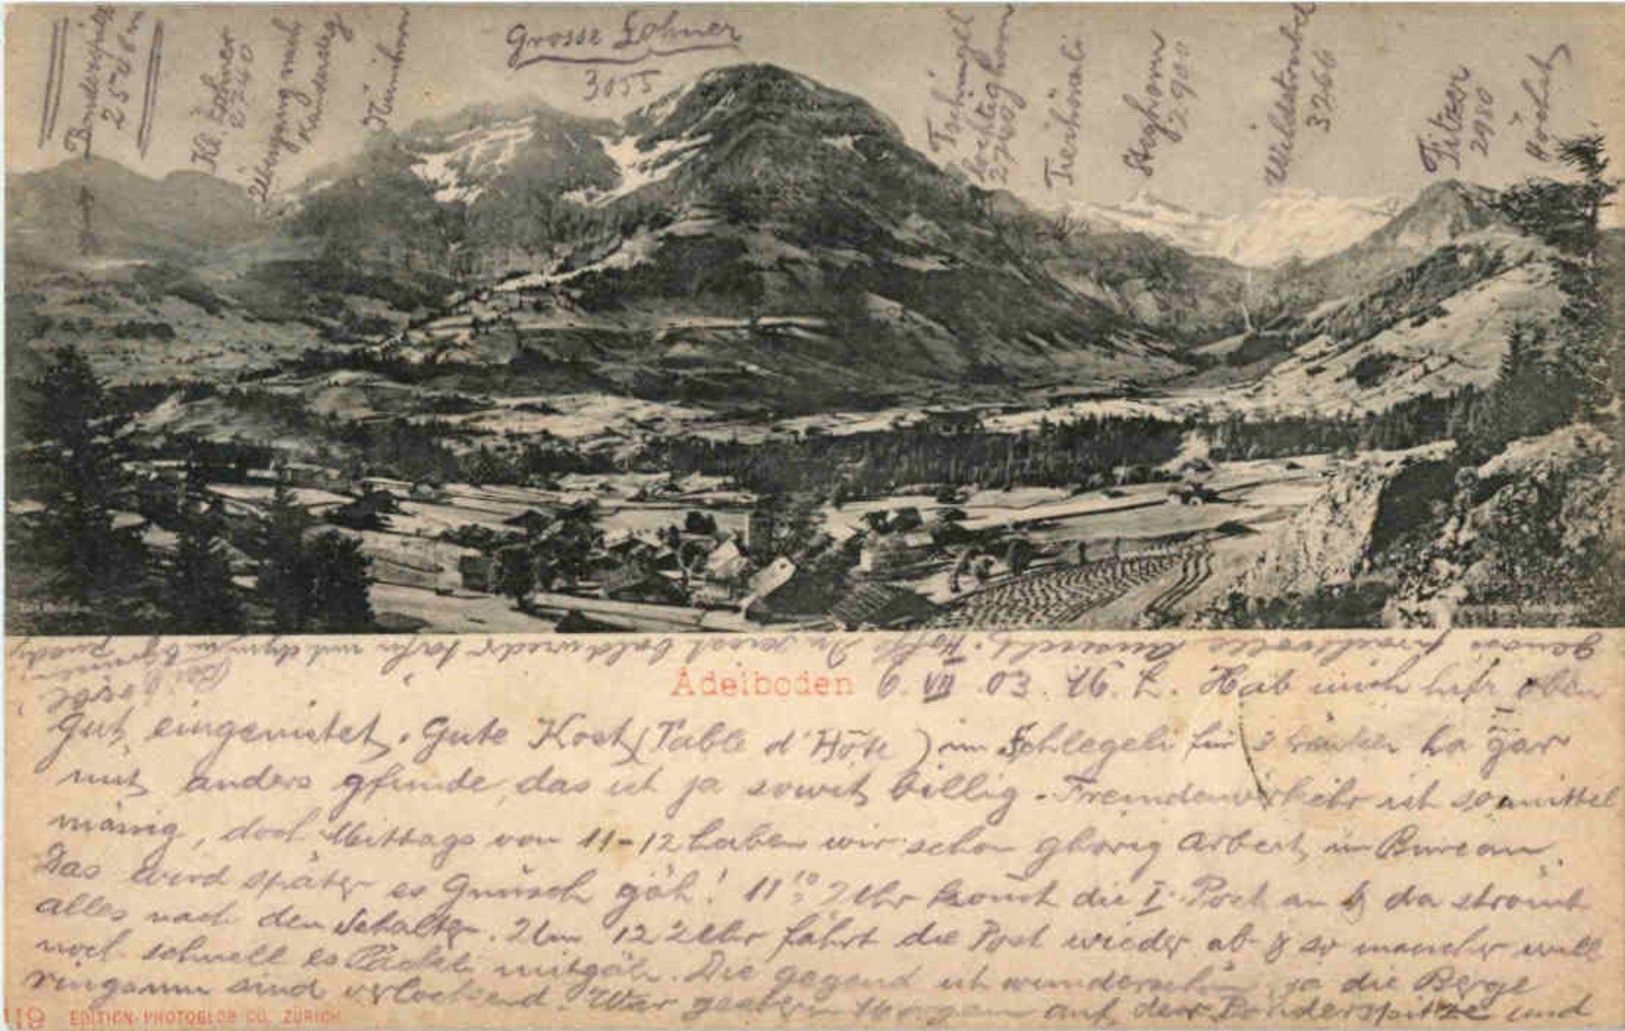 Bonderspitz
2546 m
Kl. Lohner
2740
Übergang nach
Kandersteg
Nünihorn
Grosse Lohner
3055
Tschingel
lochtighorn
2740
Steghorn
2900
Wildstrubel
3266
Fitzer
2980
Höchst
Genoss prachtvolle Aussicht. Hoffe
bald wieder
Adelboden 6. VII. 03. Hab mich hier oben
gut eingenistet. Gute Kost (Table d'Hôte) im Schlegeli für
nid anders gfunde, das ich ja soweit billig. Fremdenverkehr ist so mittel
mässig, doch Mittags von 11-12 haben wir schon ghörig Arbeit im Bureau.
Das wird später es Gnusch gäh! 11¹⁰ Uhr kommt die I. Post an & da strömt
alles nach dem Schalter. Um 12 Uhr fährt die Post wieder ab & so mancher will
noch schnell es Päckli mitgäh. Die Gegend ist wunderschön, ja die Berge
ringsum sind verlockend War gestern Morgen auf der Bonderspitze und
119 EDITION PHOTOGLOB CO. ZÜRICH